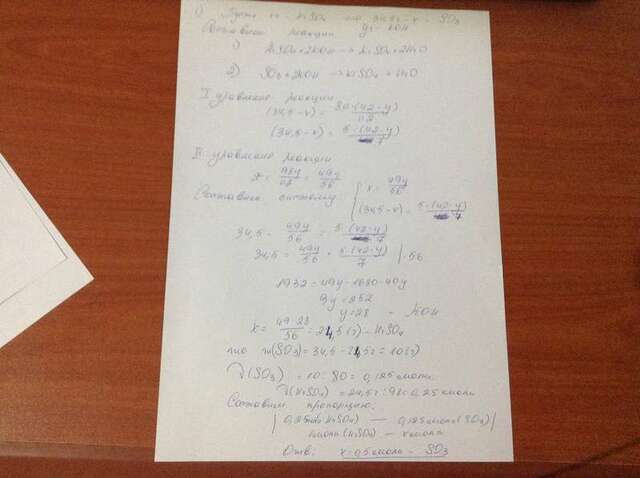 1) Пусть x - H2SO4 то 34,5г - x - SO3
y - KOH
Составим реакции
1) H2SO4 + 2KOH → K2SO4 + 2H2O
2) SO3 + 2KOH → K2SO4 + H2O
I уравнение реакции
(34,5 - x) = 80·(42-y)/112
(34,5 - x) = 5·(42-y)/7
II уравнение реакции
x = 98y/112 = 49y/56
Составим систему | x = 49y/56
| (34,5 - x) = 5·(42-y)/7
34,5 - 49y/56 = 5·(42-y)/7
34,5 = 49y/56 + 5·(42-y)/7 | ·56
1932 = 49y + 1680 - 40y
9y = 252
y = 28 - KOH
x = 49·28/56 = 24,5 (г) - H2SO4
то m(SO3) = 34,5 - 24,5г = 10(г)
(SO3) = 10 : 80 = 0,125 моль
(H2SO4) = 24,5г : 98 = 0,25 моль
Составим пропорцию
H2SO4 — 0,125 моль (SO3)
1 моль (H2SO4) — x моль
Отв: x = 0,5 моль - SO3